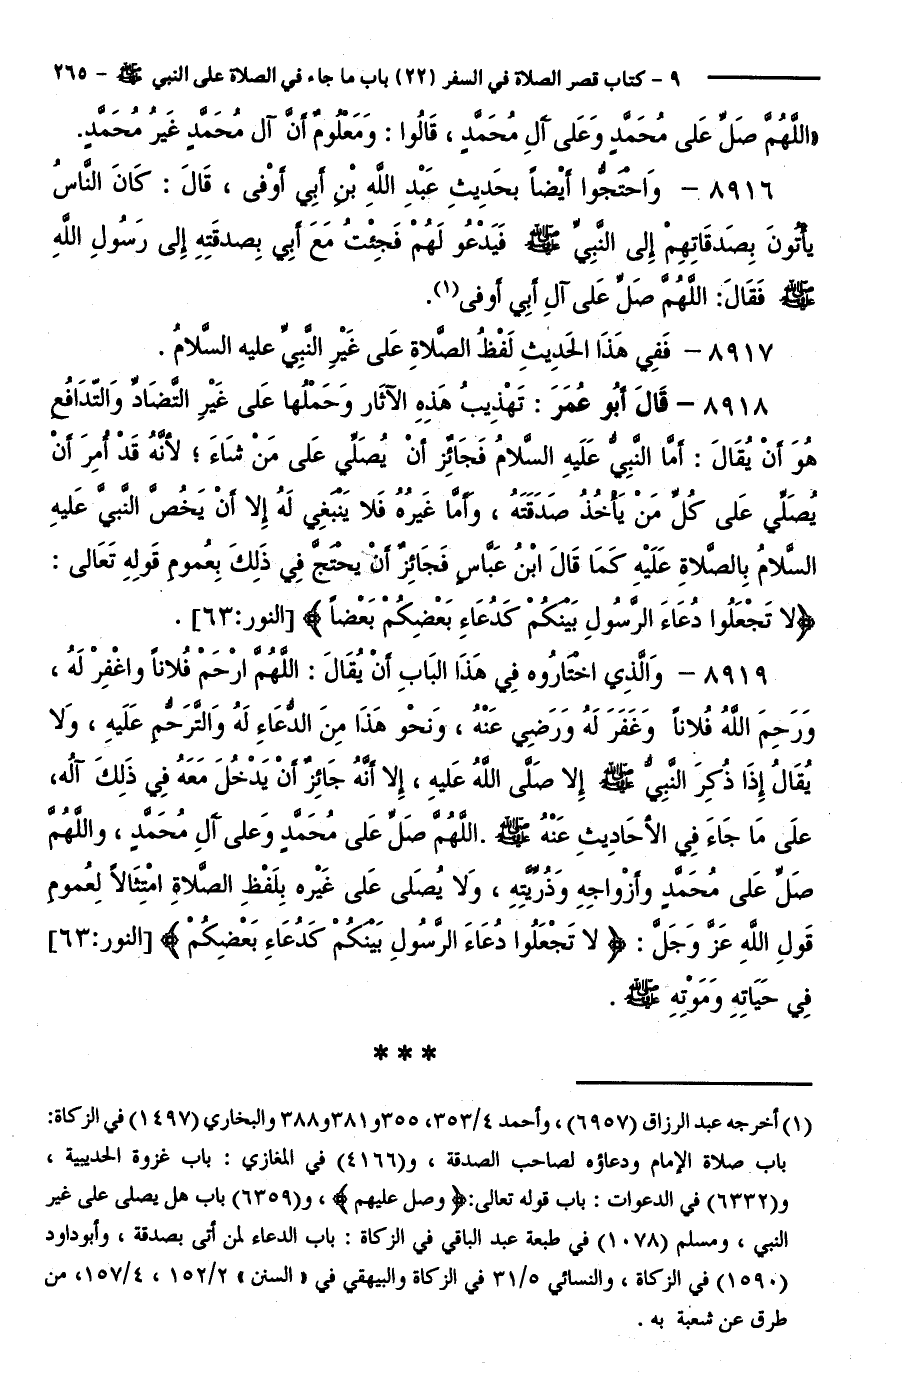 ٩ - كتاب قصر الصلاة في السفر (٢٢) باب ما جاء في الصلاة على النبي ﷺ - ٢٦٥
«اللَّهُمَّ صَلِّ عَلى مُحَمَّدٍ وَعَلى آلِ مُحَمَّدٍ ، قَالُوا : وَمَعْلُومٌ أَنَّ آل مُحَمَّدٍ غَيرُ مُحَمَّدٍ.
٨٩١٦ - وَاحْتَجُّوا أَيْضاً بحَديثِ عَبْدِ اللَّهِ بْنِ أَبِي أَوْفى ، قَالَ : كَانَ النَّاسُ
يأتُونَ بِصَدقَاتِهِمْ إِلى النَّبِيِّ ﷺ فَيَدْعُو لَهُمْ فَجِئْتُ مَعَ أَبِي بِصدقَتِهِ إِلى رَسُولِ اللَّهِ
ﷺ فَقَالَ: اللَّهُمَّ صَلِّ عَلى آلِ أَبِي أَوفى(١).
٨٩١٧ - فَفِي هَذَا الحَديثِ لَفْظُ الصَّلاةِ عَلى غَيْرِ النَّبِيِّ عليه السَّلامُ .
٨٩١٨ - قَالَ أَبُو عُمَرَ : تَهْذِيبُ هَذِهِ الآثَار وَحَمْلُها عَلى غَيْرِ التَّضَادِّ وَالتَّدَافُعِ
هُوَ أَنْ يُقَالَ : أَمَّا النَّبِيُّ عَلَيهِ السَّلامُ فَجَائِزٌ أَنْ يُصَلِّي عَلى مَنْ شَاءَ ؛ لأَنَّهُ قَدْ أُمِرَ أَنْ
يُصَلِّي عَلى كُلِّ مَنْ يَأْخُذُ صَدَقَتَهُ ، وَأَمَّا غَيرُهُ فَلا يَنْبَغِي لَهُ إِلا أَنْ يَخُصَّ النَّبِيَّ عَليهِ
السَّلامُ بِالصَّلاةِ عَلَيْهِ كَمَا قَالَ ابْنُ عَبَّاسٍ فَجَائِزٌ أَنْ يحْتَجَّ فِي ذَلِكَ بِعُمومِ قَولِهِ تَعَالى :
﴿لا تَجْعَلُوا دُعَاءَ الرَّسُولِ بَيْنَكُمْ كَدُعَاءِ بَعْضِكُمْ بَعْضاً ﴾ [النور:٦٣] .
٨٩١٩ - وَالَّذِي اخْتَارُوه فِي هَذَا البَابِ أَنْ يُقَالَ : اللَّهُمَّ ارْحَمْ فُلاناً واغْفِرْ لَهُ ،
وَرَحِمَ اللَّهُ فُلاناً وَغَفَرَ لَهُ وَرَضِي عَنْهُ ، وَنَحْو هَذَا مِنَ الدُّعَاءِ لَهُ وَالتَّرَحُّمِ عَلَيهِ ، وَلا
يُقَالُ إِذَا ذُكِرَ النَّبِيُّ ﷺ إِلا صَلَّى اللَّهُ عَليهِ ، إِلا أَنَّهُ جَائِزٌ أَنْ يَدْخُلَ مَعَهُ فِي ذَلِكَ آلُه،
عَلَى مَا جَاءَ فِي الأَحَادِيثِ عَنْهُ ﷺ .اللَّهُمَّ صَلِّ عَلى مُحَمَّدٍ وَعَلى آلِ مُحَمَّدٍ ، واللَّهُمَّ
صَلِّ عَلى مُحَمَّدٍ وأَزْواجِهِ وَذُرِّيَّتِهِ ، وَلا يُصَلى عَلى غَيْرِهِ بِلَفْظِ الصَّلاةِ امْتِثَالاً لِعُمومِ
قَولِ اللَّهِ عَزَّ وَجَلَّ : ﴿ لا تَجْعَلُوا دُعَاءَ الرَّسُولِ بَيْنَكُمْ كَدُعَاءِ بَعْضِكُمْ ﴾ [النور:٦٣]
فِي حَيَاتِهِ وَمَوْتِهِ ﷺ .
* * *
(١) أخرجه عبد الرزاق (٦٩٥٧)، وأحمد ٣٥٣/٤، ٣٥٥ و٣٨١ و٣٨٨ والبخاري (١٤٩٧) في الزكاة:
باب صلاة الإمام ودعاؤه لصاحب الصدقة ، و(٤١٦٦) في المغازي : باب غزوة الحديبية ،
و(٦٣٣٢) في الدعوات : باب قوله تعالى:﴿ وصل عليهم ﴾ ، و(٦٣٥٩) باب هل يصلى على غير
النبي ، ومسلم (١٠٧٨) في طبعة عبد الباقي في الزكاة : باب الدعاء لمن أتى بصدقة ، وأبوداود
(١٥٩٠) في الزكاة ، والنسائي ٣١/٥ في الزكاة والبيهقي في « السنن » ١٥٢/٢ ، ١٥٧/٤، من
طرق عن شعبة به .